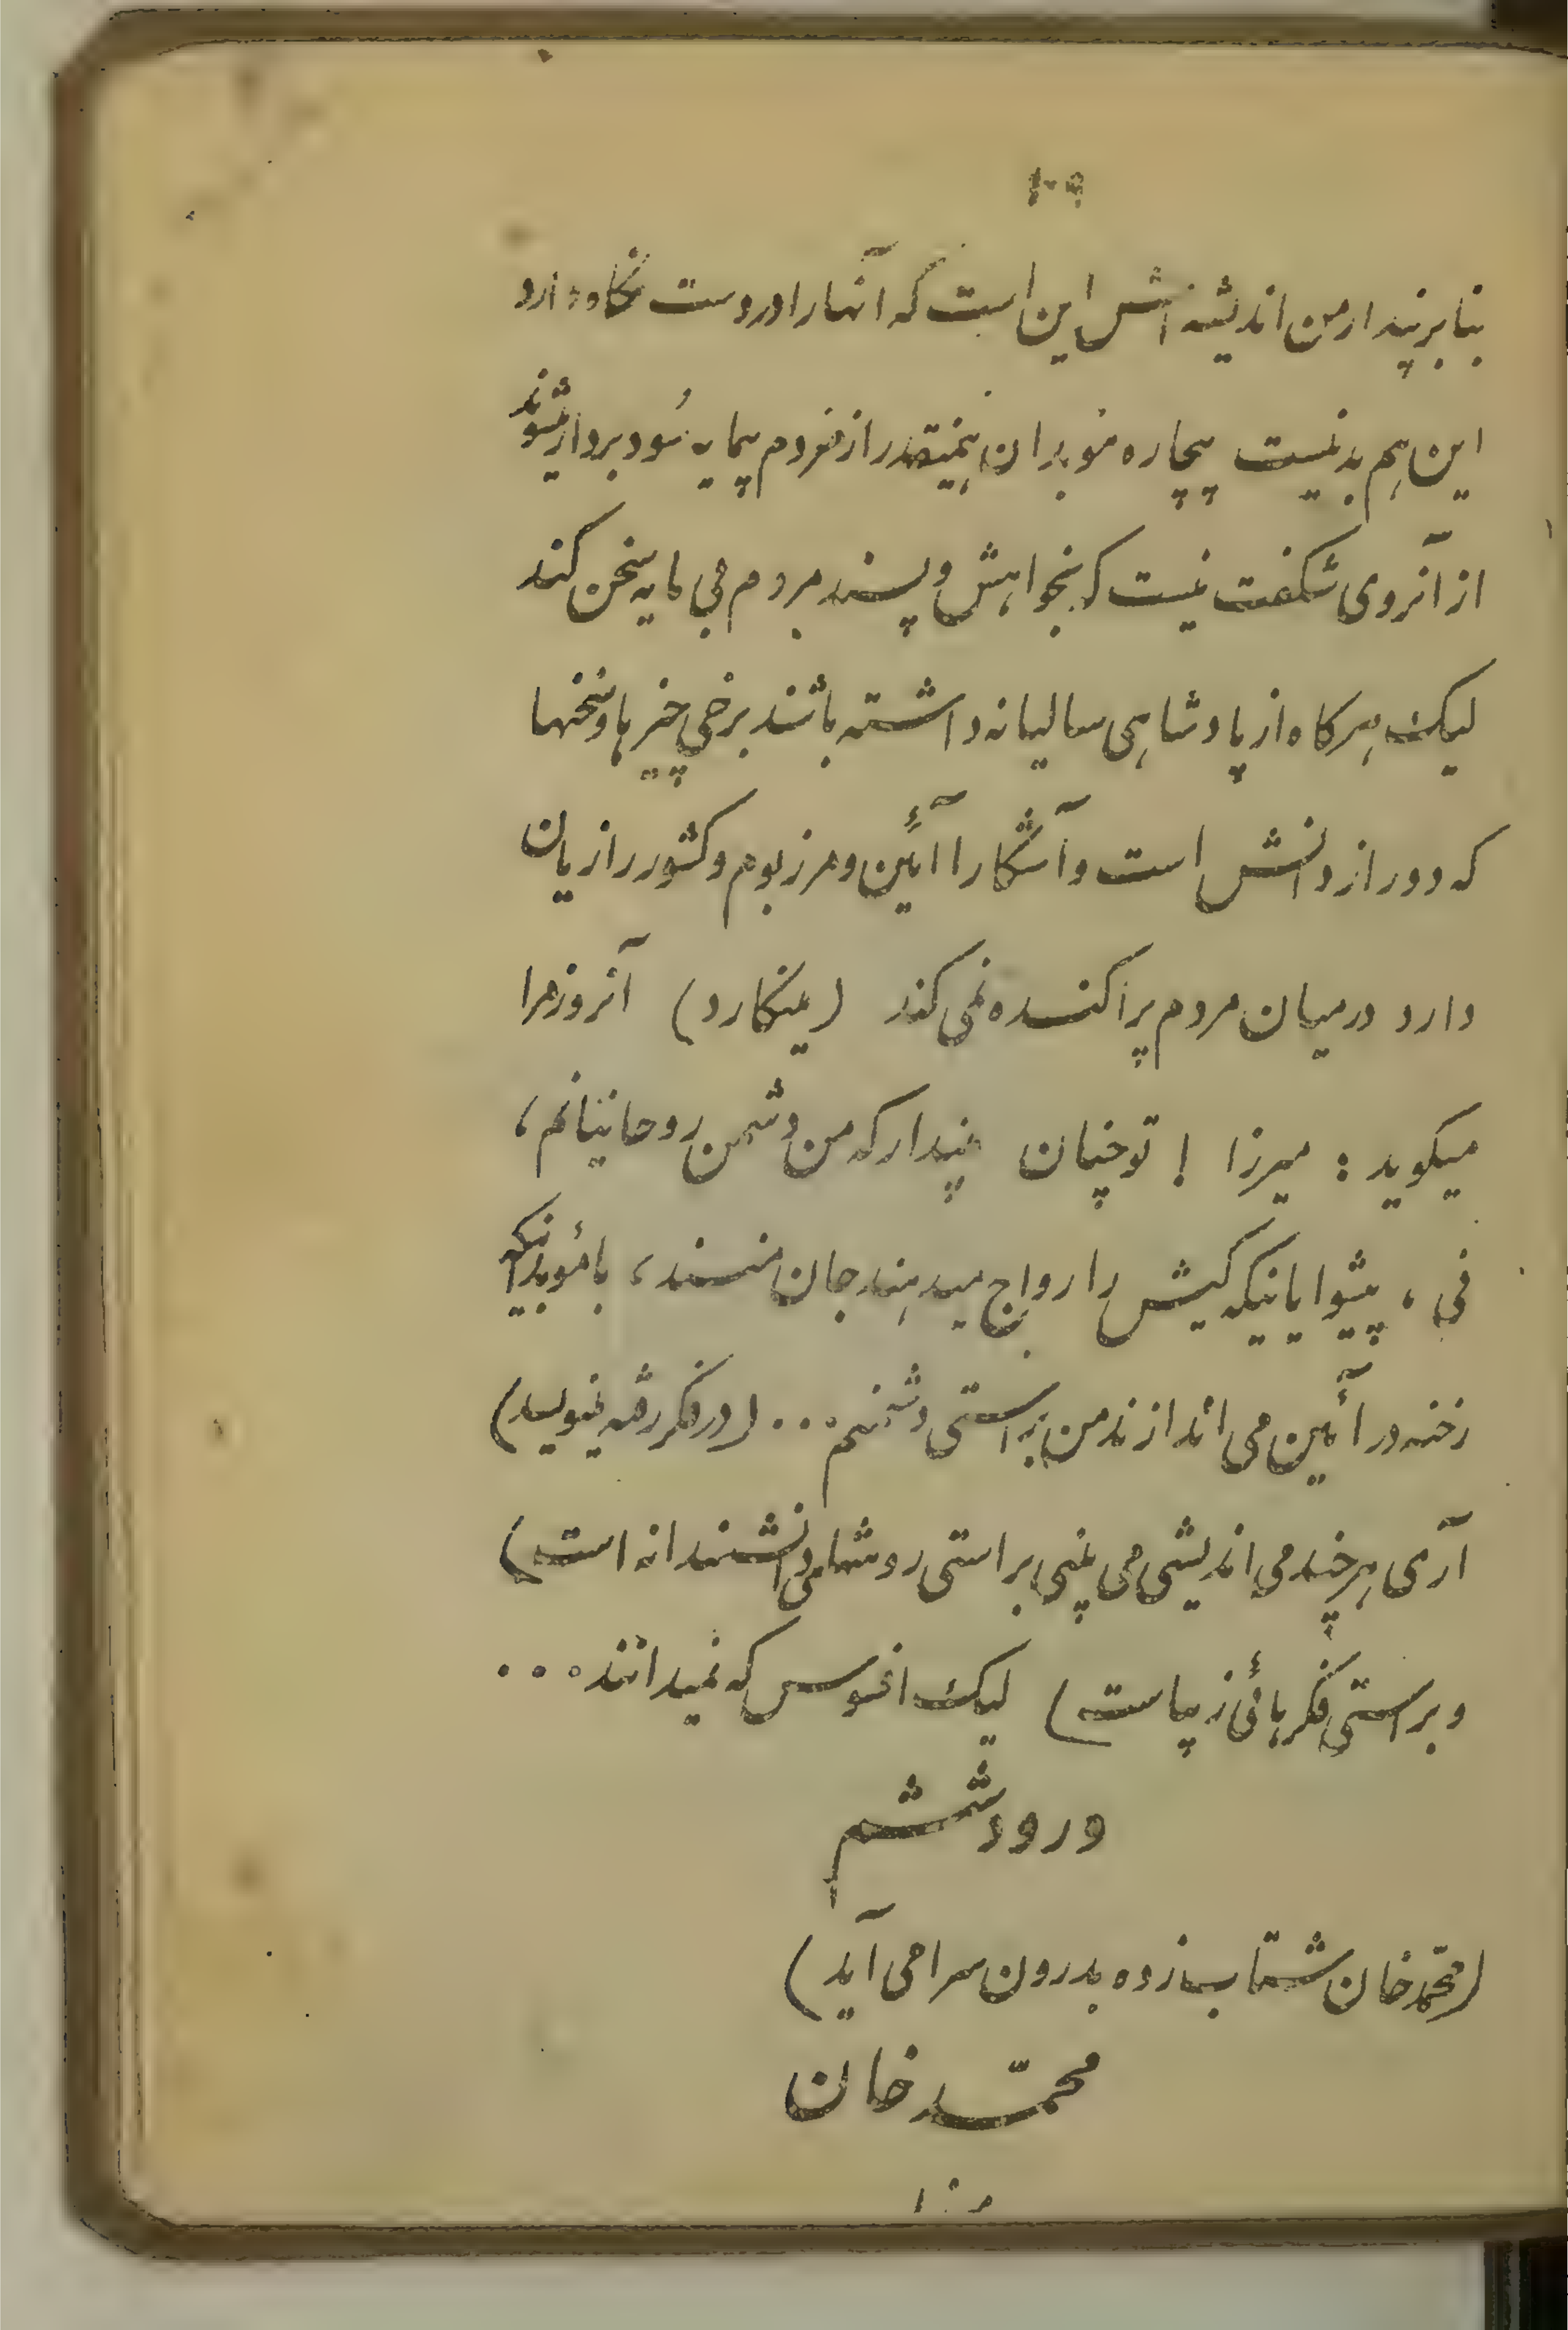 ۱۰۹
بنا بر پندار من اندیشه اش این است که آنها را در دست نگاه دارد
این هم بد نیست بیچاره موبدان همینقدر از مردم بیمایه سود بردار میشوند
از آنروی شگفت نیست که بخواهش و پسند مردم بی مایه سخن کند
لیک هر کاه از پادشاهی سالیانه داشته باشند برخی چیزها و سخنها
که دور از دانش است و آشکارا آئین و مرز بوم و کشور را زیان
دارد در میان مردم پراکنده نمی کند (مینکارد) آنروز مرا
میکوید : میرزا ! تو چنان مپندار که من دشمن روحانیانم ،
نی ، پیشوایانیکه کیش را رواج میدهند جان منند ، با موبدانیکه
رخنه در آئین می اندازند من براستی دشمنم ۰۰۰ (در فکر رفته مینویسد)
آری هر چند می اندیشی می بینی براستی روشهای دانشمندانه است )
و براستی فکرهائی زیباست ) لیک افسوس که نمیدانند ۰۰۰
ورود ششم
(محمّد خان شتاب زده بدرون سرا می آید )
محمّد خان